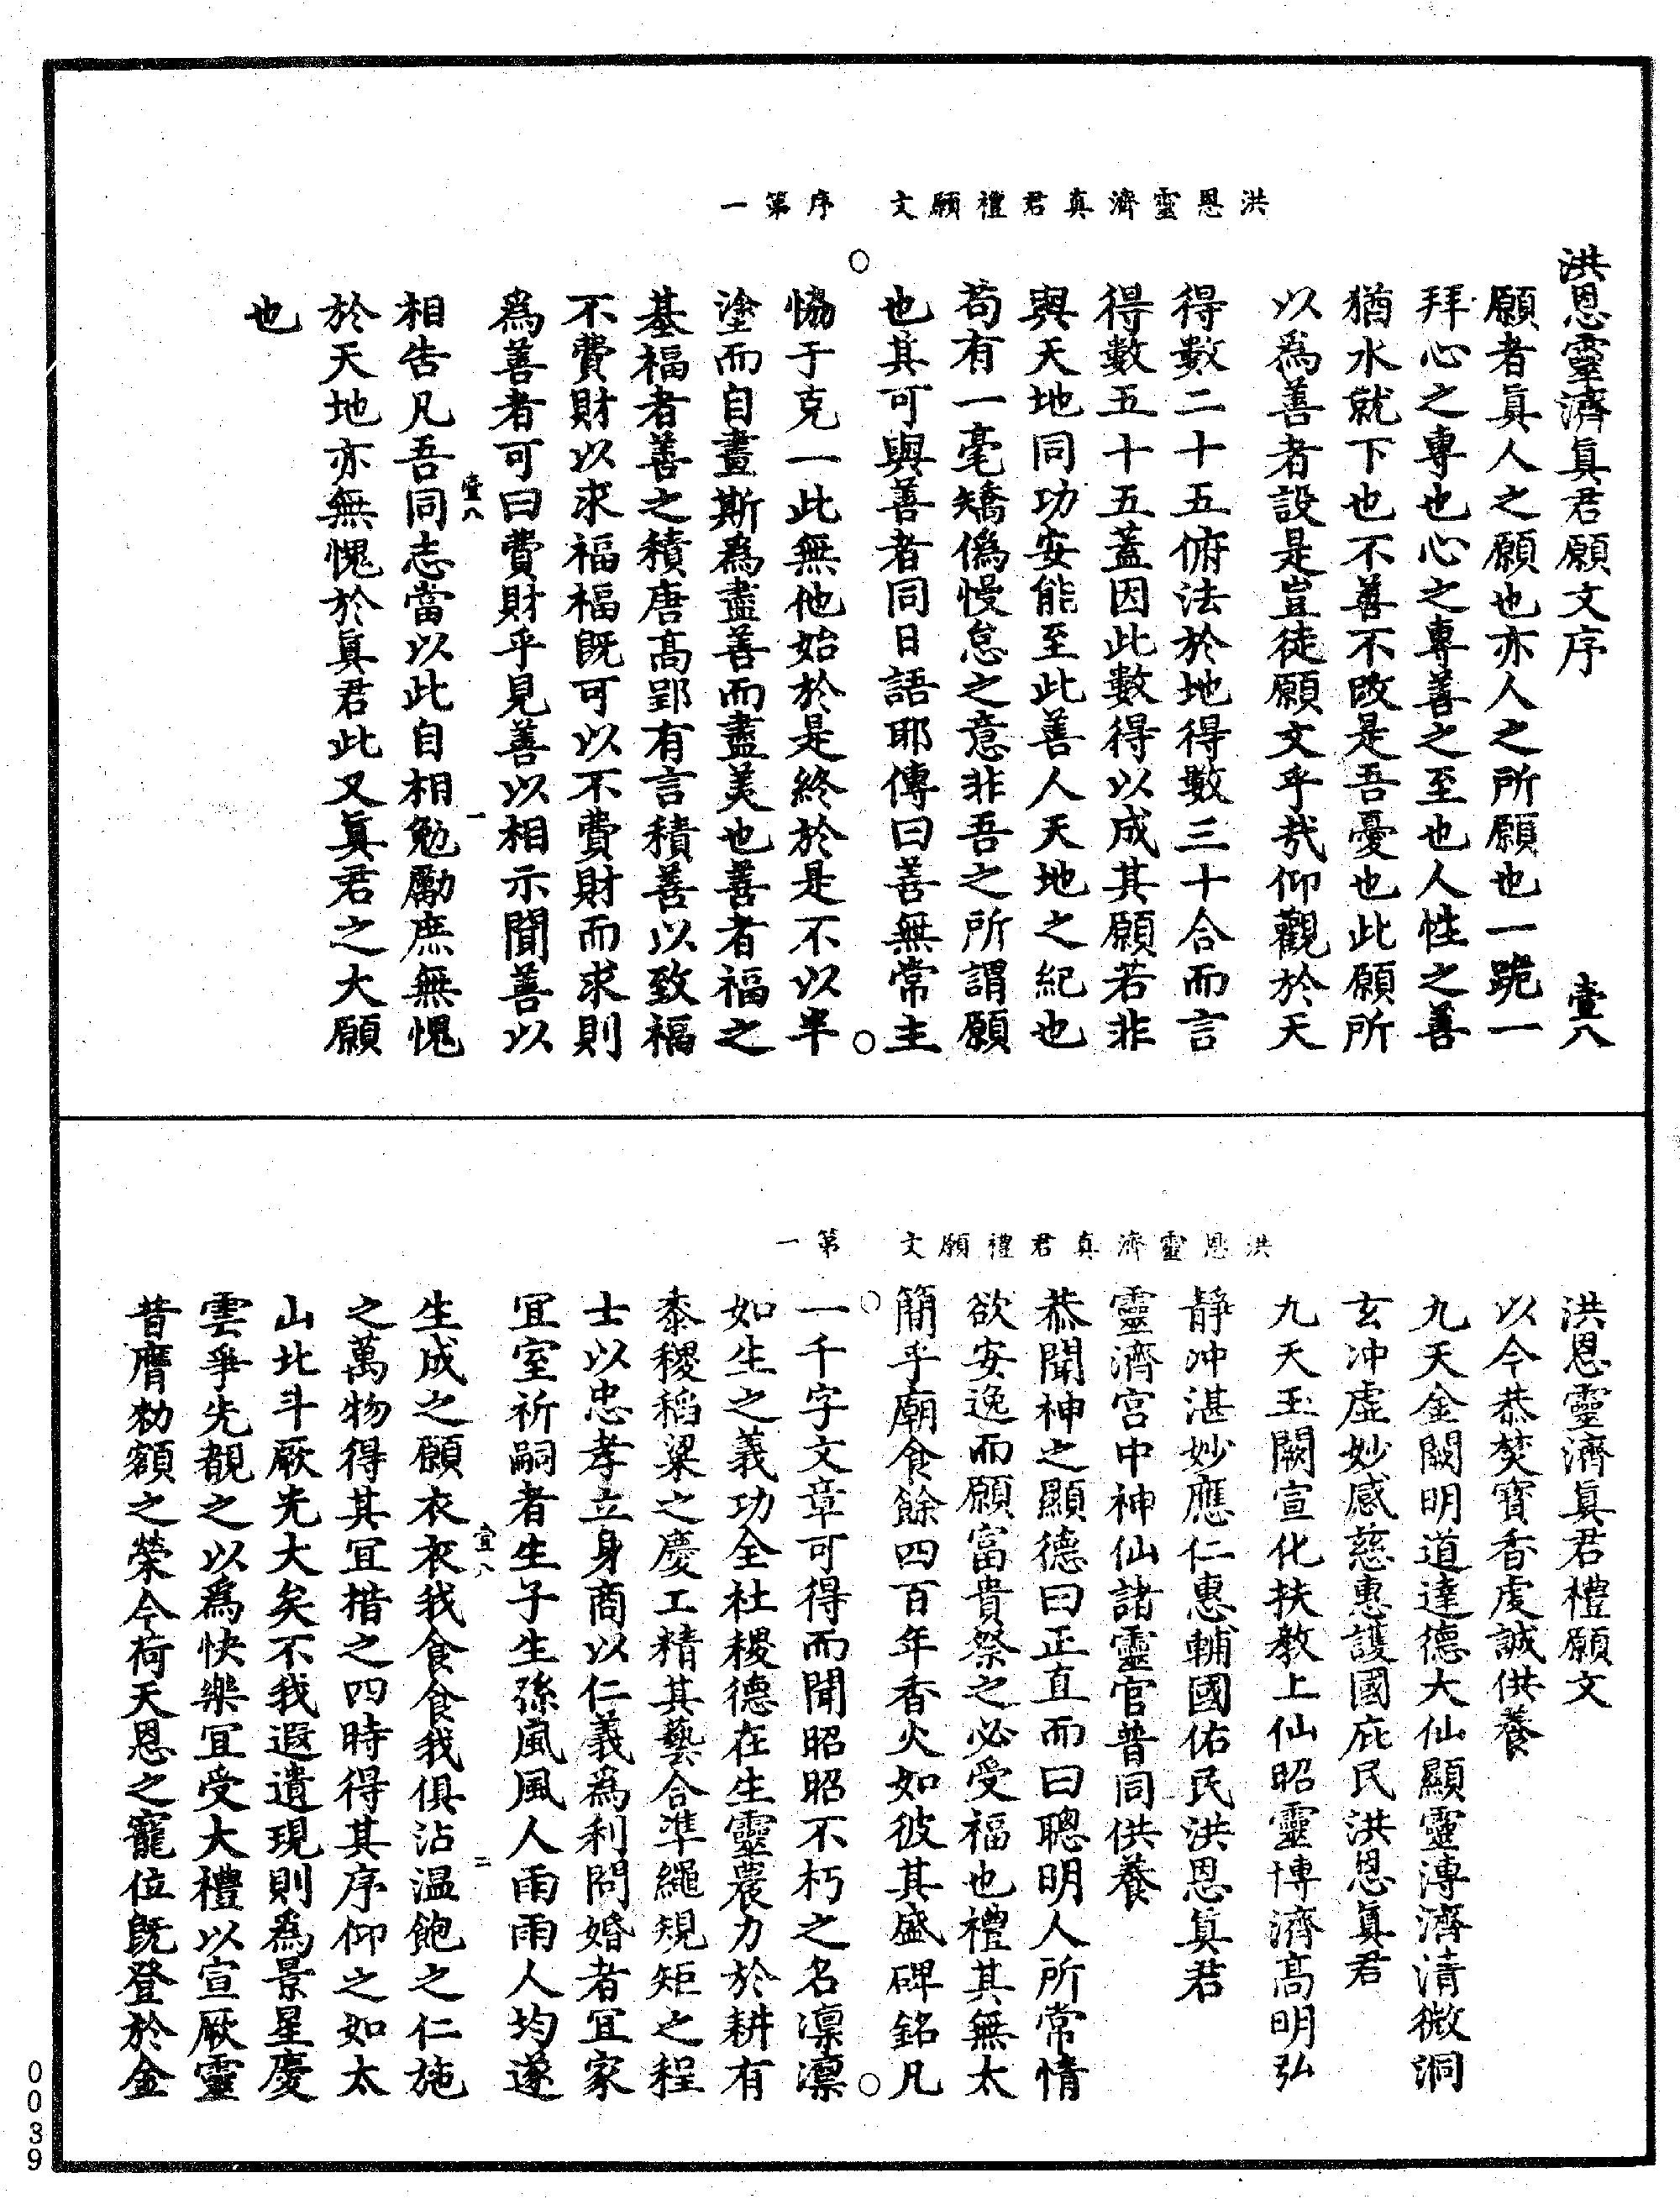 洪恩靈濟真君禮願文　序第一
洪恩靈濟眞君願文序　壹八
願者眞人之願也亦人之所願也一跪一
拜心之專也心之專善之至也人性之善
猶水就下也不善不改是吾憂也此願所
以爲善者設是豈徒願文乎㦲仰觀於天
得數二十五俯法於地得數三十合而言
得數五十五蓋因此數得以成其願若非
與天地同功安能至此善人天地之紀也
苟有一毫矯僞慢怠之意非吾之所謂願
也其可與善者同日語耶傳曰善無常主
恊于克一此無他始於是終於是不以半
塗而自畫斯爲盡善而盡美也善者福之
基福者善之積唐高郢有言積善以致福
不費財以求福福既可以不費財而求則
爲善者可曰費財乎見善以相示聞善以
壹八　一
相告凡吾同志當以此自相勉勵庶無愧
於天地亦無愧於眞君此又眞君之大願
也
洪恩靈濟真君禮願文　第一
洪恩靈濟眞君禮願文
以今恭焚寳香虔誠供養
九天金闕明道達德大仙顯靈溥濟清微洞
玄冲虛妙感慈惠護國庇民洪恩眞君
九天玉闕宣化扶教上仙昭靈博濟高明弘
靜冲湛妙應仁惠輔國佑民洪恩眞君
靈濟宮中神仙諸靈官普同供養
恭聞神之顯德曰正直而曰聰明人所常情
欲安逸而願富貴祭之必受福也禮其無太
簡乎廟食餘四百年香火如彼其盛碑銘凡
一千字文章可得而聞昭昭不朽之名凛凛
如生之義功全社稷德在生靈農力於耕有
黍稷稻粱之慶工精其藝合準繩規矩之程
士以忠孝立身商以仁義爲利問婚者冝家
冝室祈嗣者生子生孫風風人雨雨人均遂
壹八　二
生成之願衣衣我食食我俱沾温飽之仁施
之萬物得其冝措之四時得其序仰之如太
山北斗厥光大矣不我遐遺現則爲景星慶
雲爭先覩之以爲快樂冝受大禮以宣厥靈
昔膺勑額之榮今荷天恩之寵位既登於金
0039